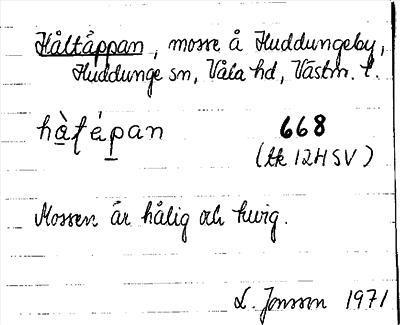 Håltäppan, mosse å Huddungeby,
Huddunge sn, Våla hd, Västm. l.
668
(tk 12H SV)
Mossen är hålig och tuvig.
L. Jonsson 1971